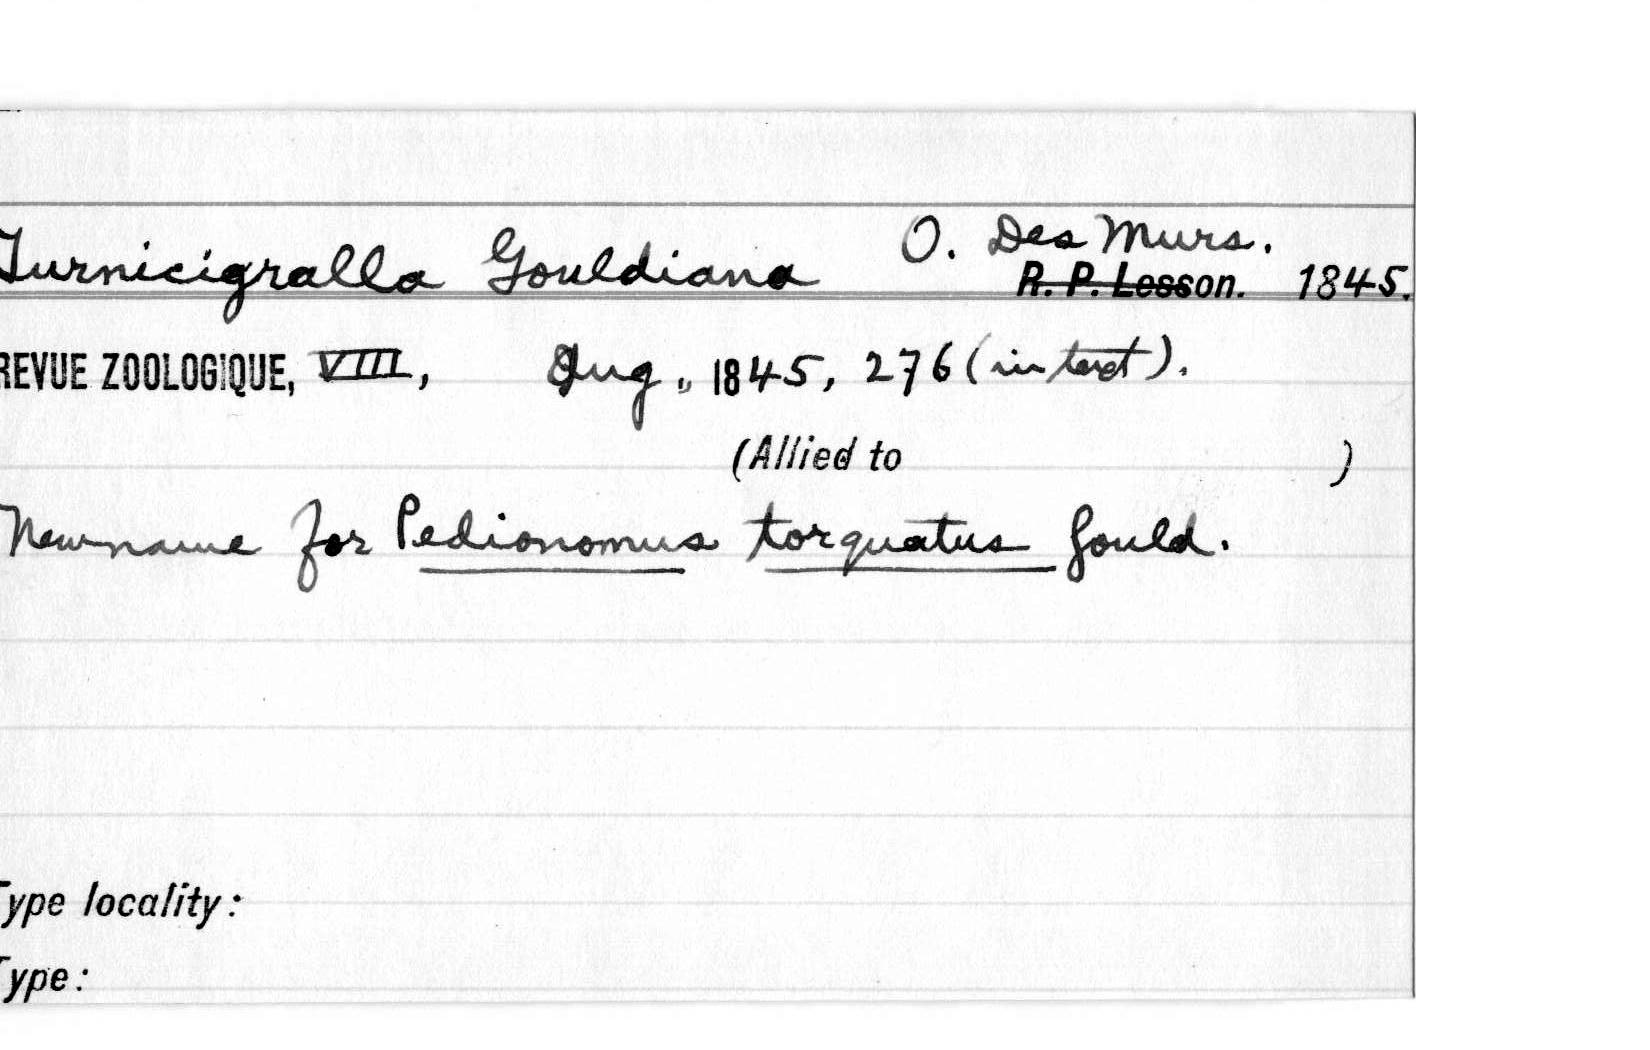 Turnicigralla Gouldiana O. Des Murs.
R. P. Lesson. 1845.
REVUE ZOOLOGIQUE, VIII, Aug., 1845, 276 (in text).
(Allied to )
New name for Pedionomus torquatus Gould.
Type locality:
Type: